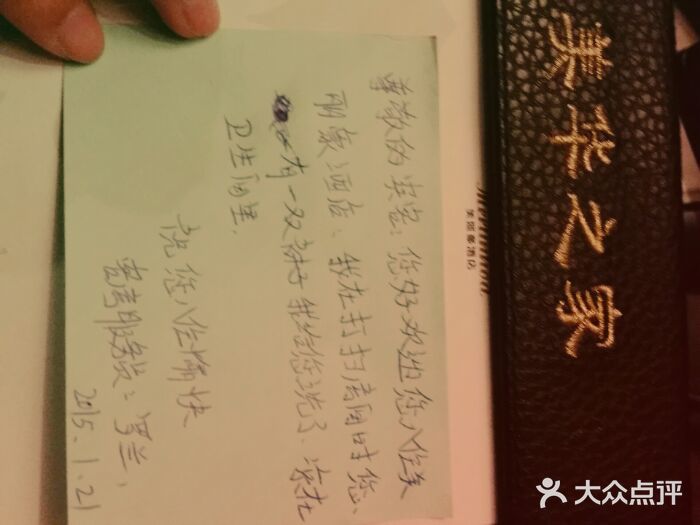 尊敬的宾客：您好！欢迎您入住美
丽豪酒店、我在打扫房间时您、
有一双袜子我给您洗了、凉在
卫生间里.
祝您入住愉快
客房服务员：罗兰、
2015.1.21
美华之家
大众点评